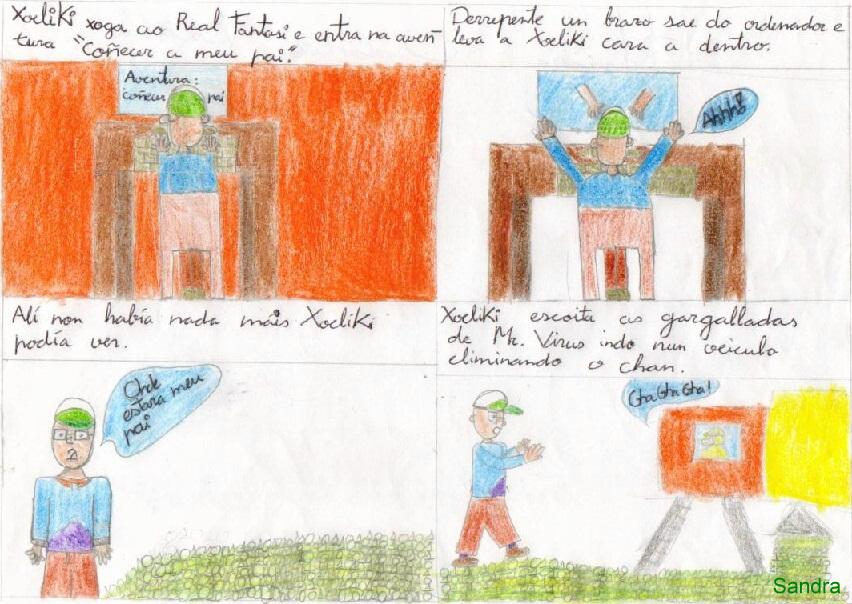 Xoeliki xoga ao Real Fantasi e entra na aven-
tura "Coñecer a meu pai."
Aventura:
coñecer pai
Derrepente un brazo sae do ordenador e
leva a Xoeliki cara a dentro.
Ahhh!
Alí non había nada máis Xoeliki
podía ver.
Onde
estara meu
pai
Xoeliki escoita as gargalladas
de Mr. Virus indo nun veiculo
eliminando o chan.
Gha Gha Gha!
Sandra